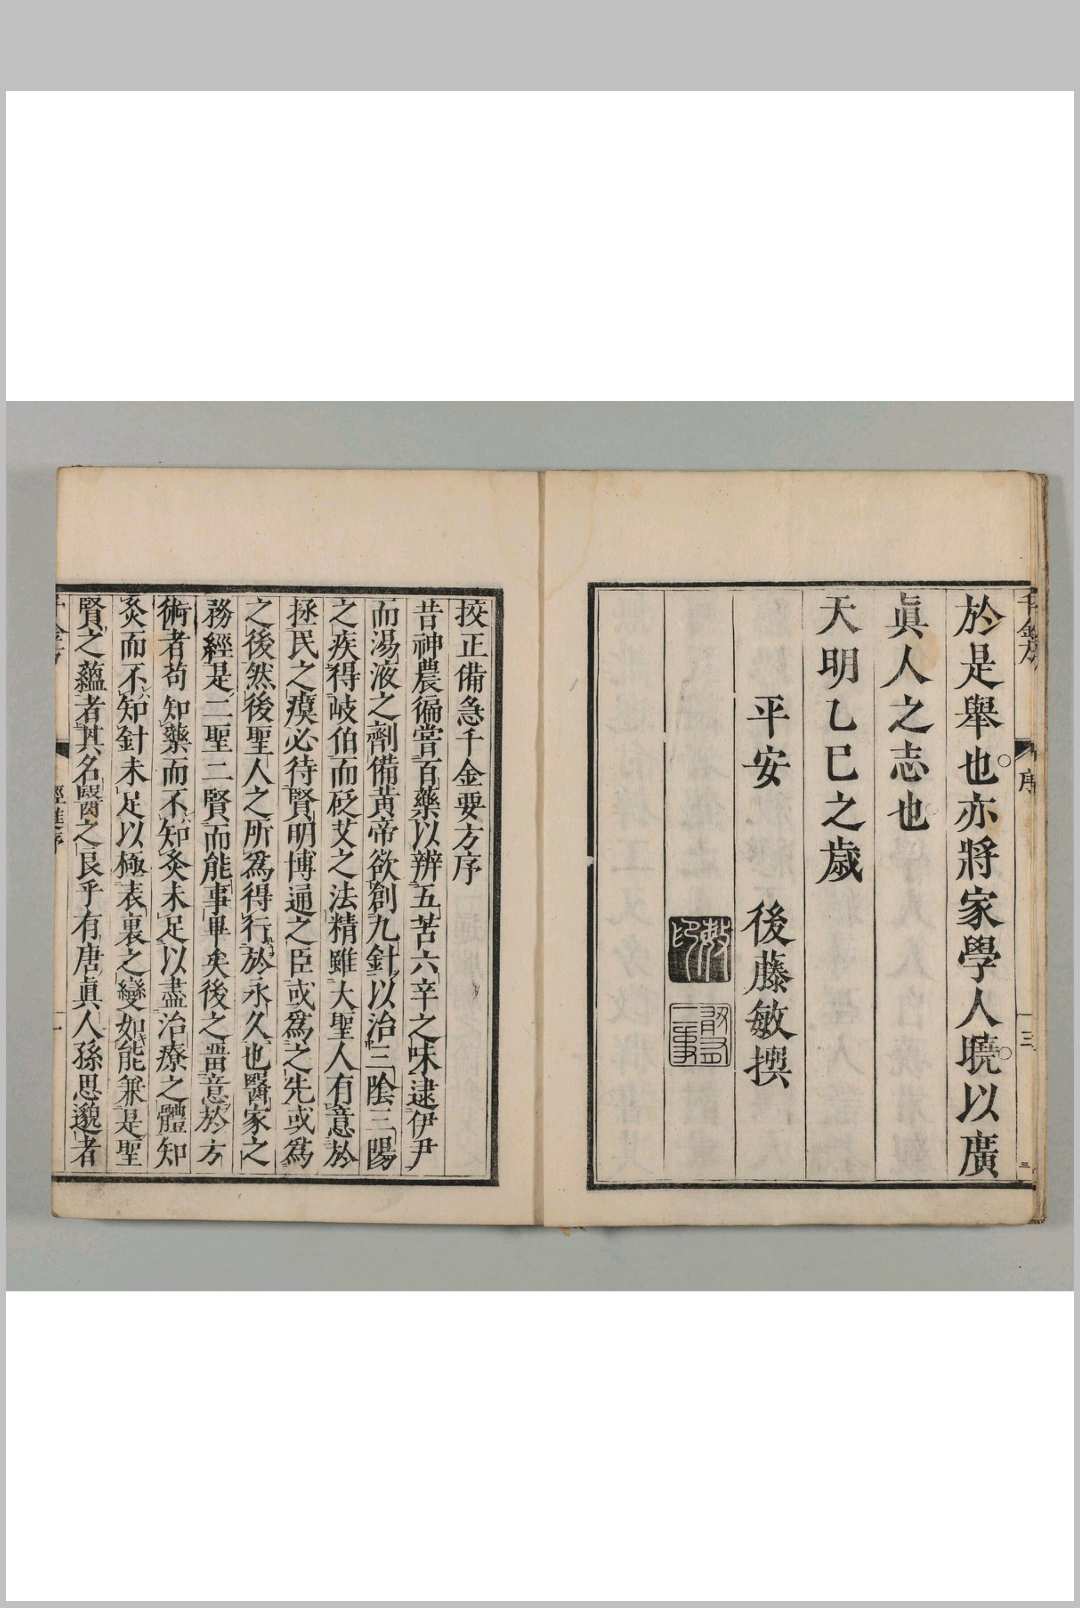 於是舉也亦將家學人曉以廣
眞人之志也
天明乙巳之歲
平安　後藤敏撰
千金方
序
三
挍正備急千金要方序
昔神農徧嘗百藥以辨五苦六辛之味逮伊尹
而湯液之劑備黃帝欲創九針以治三陰三陽
之疾得岐伯而砭艾之法精雖大聖人有意於
拯民之瘼必待賢明博通之臣或爲之先或爲
之後然後聖人之所爲得行於永久也醫家之
務經是二聖二賢而能事畢矣後之留意於方
術者苟知藥而不知灸未足以盡治療之體知
灸而不知針未足以極表裏之變如能兼是聖
賢之蘊者其名醫之良乎有唐眞人孫思邈者